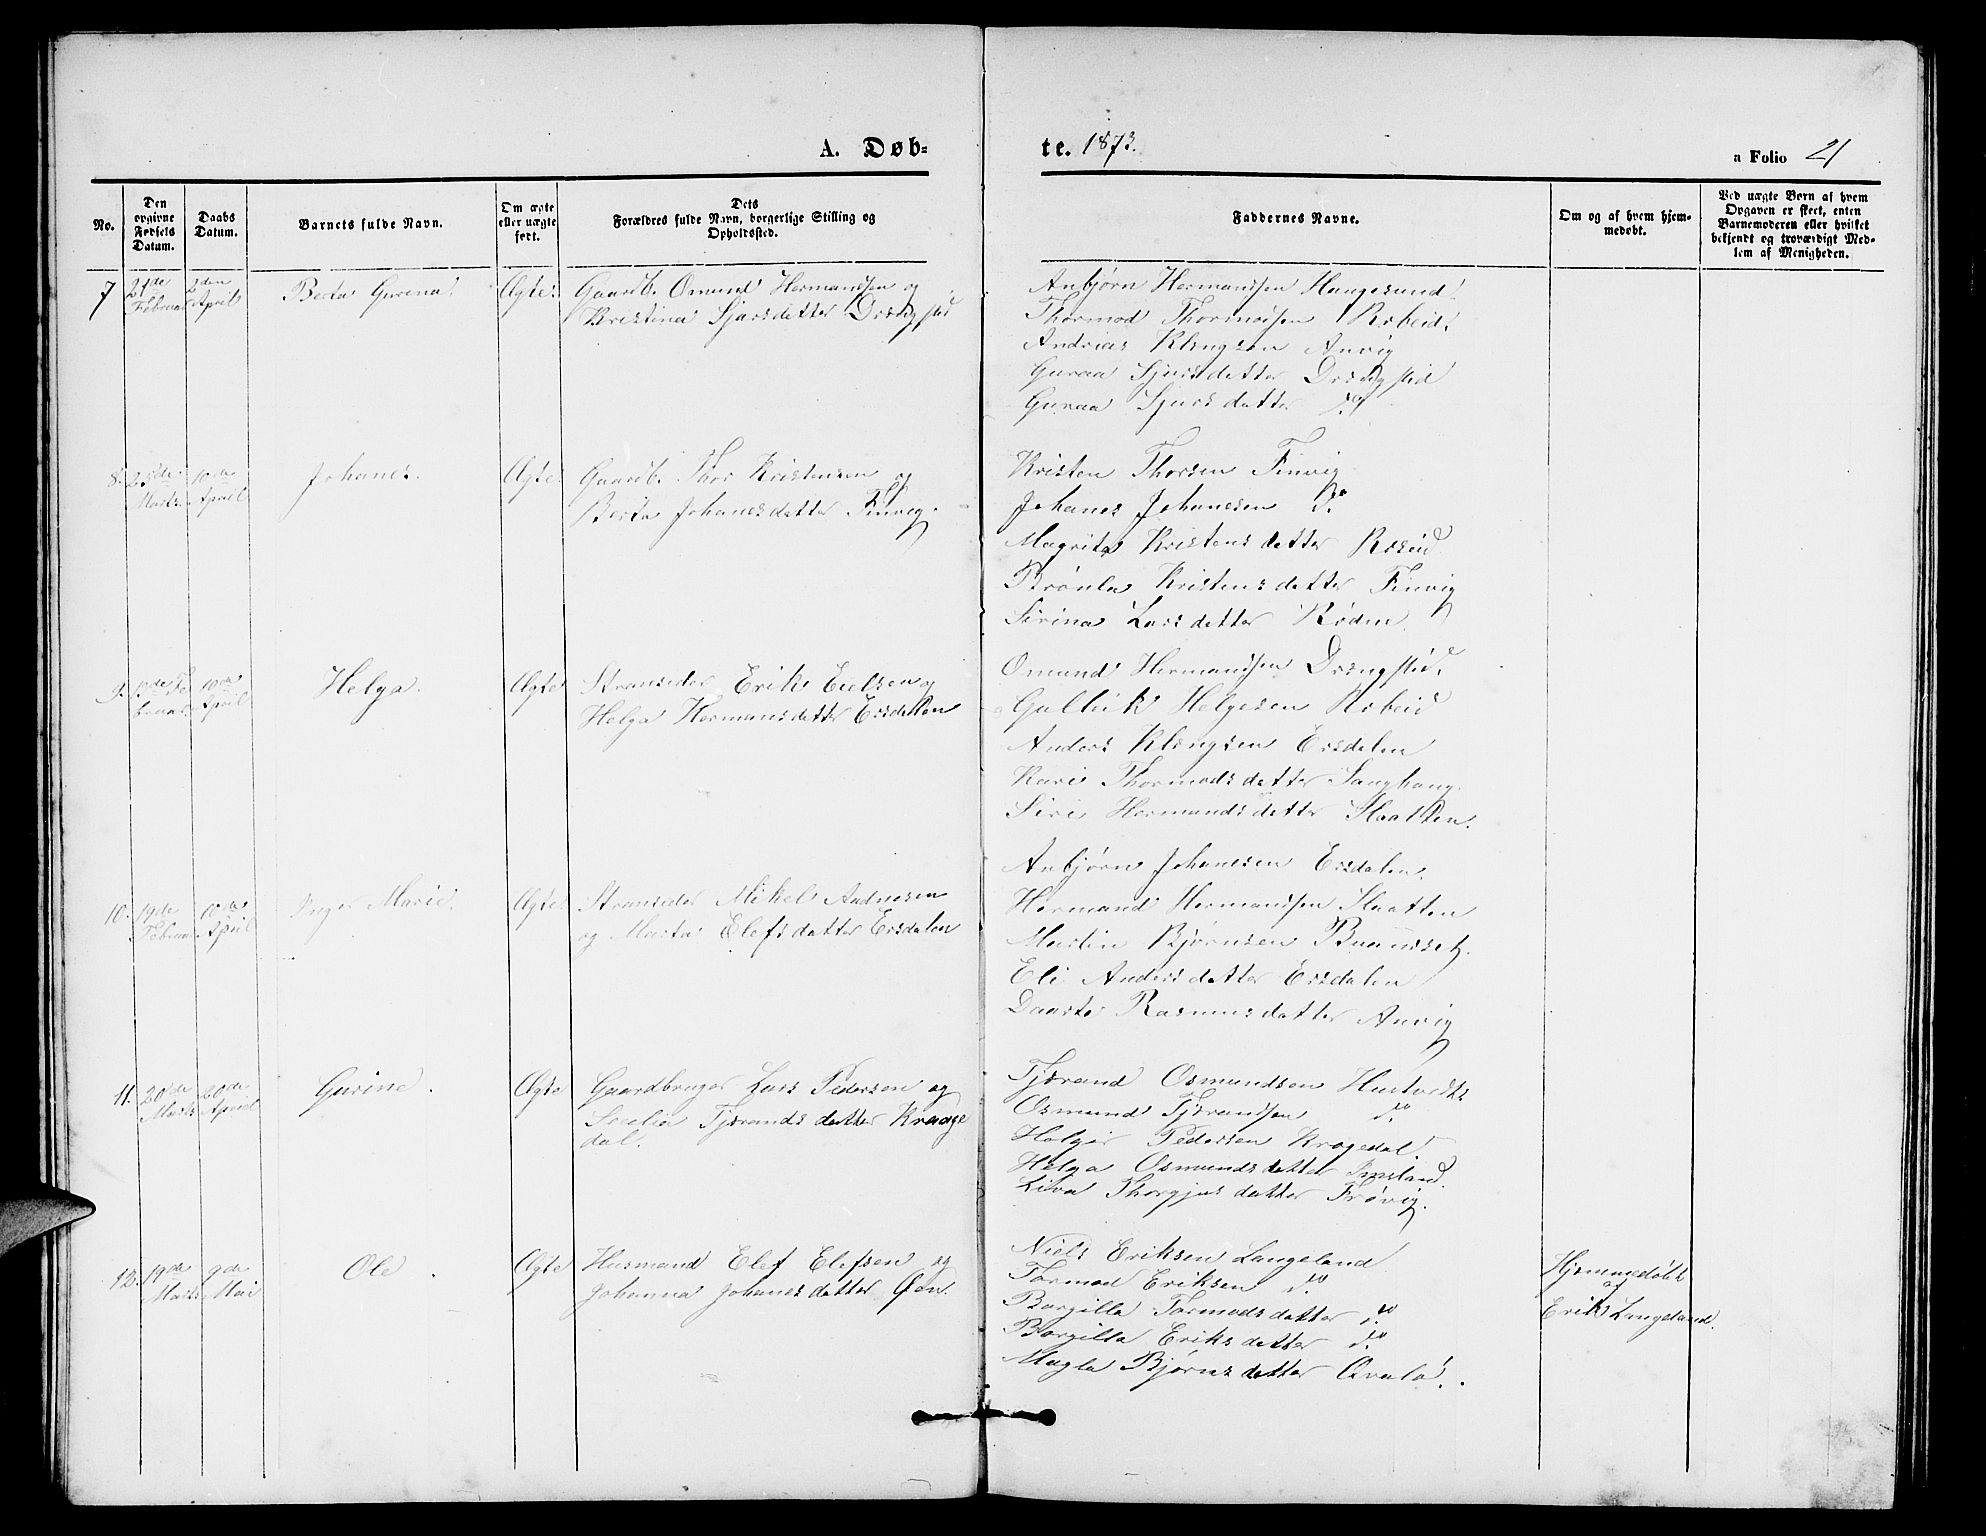 A. Døb-
te. 1873.
a Folio 21
No.
Den opgivne Fødsels Datum.
Daabs Datum.
Barnets fulde Navn.
Om ægte eller uægte født.
Dets Forældres fulde Navn, borgerlige Stilling og Opholdssted.
Faddernes Navne.
Om og af hvem hjemmedøbt.
Ved uægte Børn af hvem Opgaven er skeet, enten Barnemoderen eller hvilket bekjendt og troværdigt Medlem af Menigheden.
7
Februar
April
Berta Gurina.
Ægte.
Gaardb. Omund Hermandsen og
Kristina Sjursdatter Drengstid
Anbjørn Hermandsen Haugesund.
Thormod Thormodsen Røbeid.
Andreas Klengsen Anvig
Guraa Sjursdatter Drengstid
Guraa Sjursdatter do
8. 25de Marts
10de April
Johanes.
Ægte.
Gaardb. Thor Kristensen og
Berta Johanesdatter Finvig.
Kristen Thorsen Finvig
Johanes Johanesen do
Magrita Kristensdatter Røseid
Brønla Kristensdatter Finvig
Sirina Larsdatter Røden
9.
10de April
Helga.
Ægte
Stransider Erik Eielsen og
Helga Hermansdatter Ersdalen
Omund Hermandsen Drengstid.
Gulleik Helgesen Røbeid
Anders Klengsen Ersdalen
Kari Thormodsdatter Sanghaug.
Siri Hermandsdatter Slaatten.
10. 19de Februar
10de April
Inger Marie.
Ægte
Stransider Mikel Andresen
og Marta Elefsdatter Ersdalen
Anbjørn Johanesen Ersdalen.
Hermand Hermandsen Slaatten
Martin Bjørnsen
Eli Andersdatter Ersdalen
Daarte Rasmusdatter Anvig
11. 20de Marts
20de April
Gurine.
Ægte
Gaardbruger Lars Pedersen og
Secelia Tjerandsdatter Kraage
dal.
Tjerand Osmundsen Hustvedt
Osmund Tjerandsen do
Holgir Pedersen Krogedal.
Helga Osmundsdatter Imsland.
Liva Thorgjusdatter Frøvig.
12. 19de Marts
9de Mai
Ole.
Ægte
Husmand Elef Elefsen og
Johanna Johanesdatter Øen.
Niels Eriksen Langeland
Tormod Eriksen do
Borgilla Tormodsdatter do
Borgilla Eriksdatter do
Magla Bjørnsdatter Qvalø.
Hjemmedøbt
af
Erik Langeland.